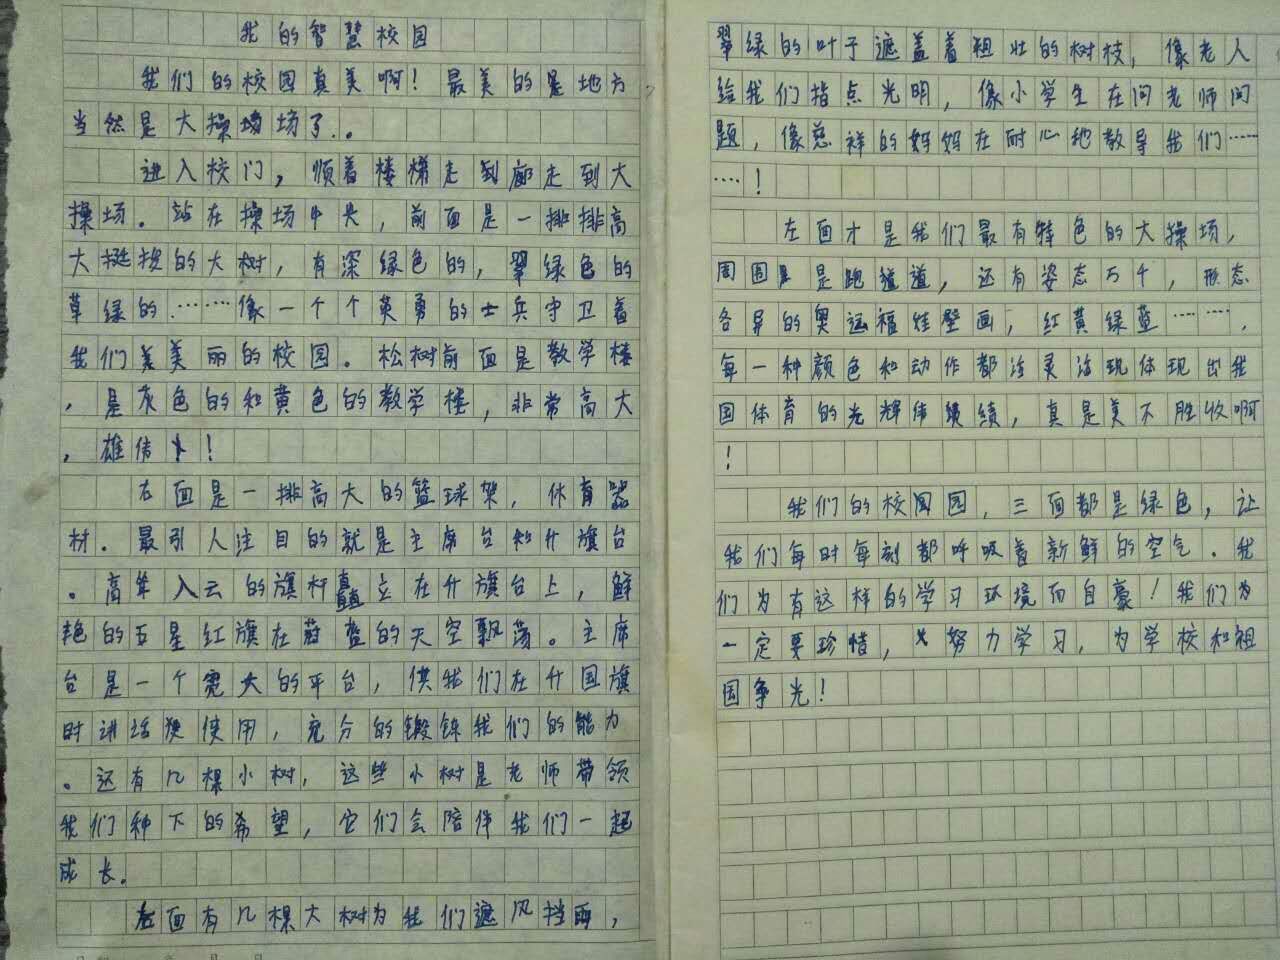 我的智慧校园
我们的校园真美啊！最美的是地方
当然是大操场了..
进入校门，顺着楼梯走到廊走到大
操场。站在操场中央，前面是一排排高
大挺拔的大树，有深绿色的，翠绿色的
草绿的……像一个个英勇的士兵守卫着
我们美美丽的校园。松树前面是教学楼
，是灰色的和黄色的教学楼，非常高大
，雄伟！
右面是一排高大的篮球架，体育器
材。最引人注目的就是主席台和升旗台
。高耸入云的旗杆直立在升旗台上，鲜
艳的五星红旗在蓝的天空飘荡。主席
台是一个宽大的平台，供我们在升国旗
时讲话使用，充分的锻铼我们的能力
。还有几棵小树，这些小树是老师带领
我们种下的希望，它们会陪伴我们一起
成长。
左面有几棵大树为我们遮风挡雨，
翠绿的叶子遮盖着粗壮的树枝，像老人
给我们指点光明，像小学生在问老师问
题，像慈祥的妈妈在耐心地教导我们……
……！
左面才是我们最有特色的大操场，
周围是跑道道，还有姿态万千，形态
各异的奥运福娃壁画，红黄绿蓝……．
每一种颜色和动作都活灵活现体现出我
国体育的光辉伟绩绩，真是美不胜收啊
！
我们的校园园，三面都是绿色，让
我们每时每刻都呼吸着新鲜的空气．我
们为有这样的学习环境而自豪！我们为
一定要珍惜，努力学习，为学校和祖
国争光！